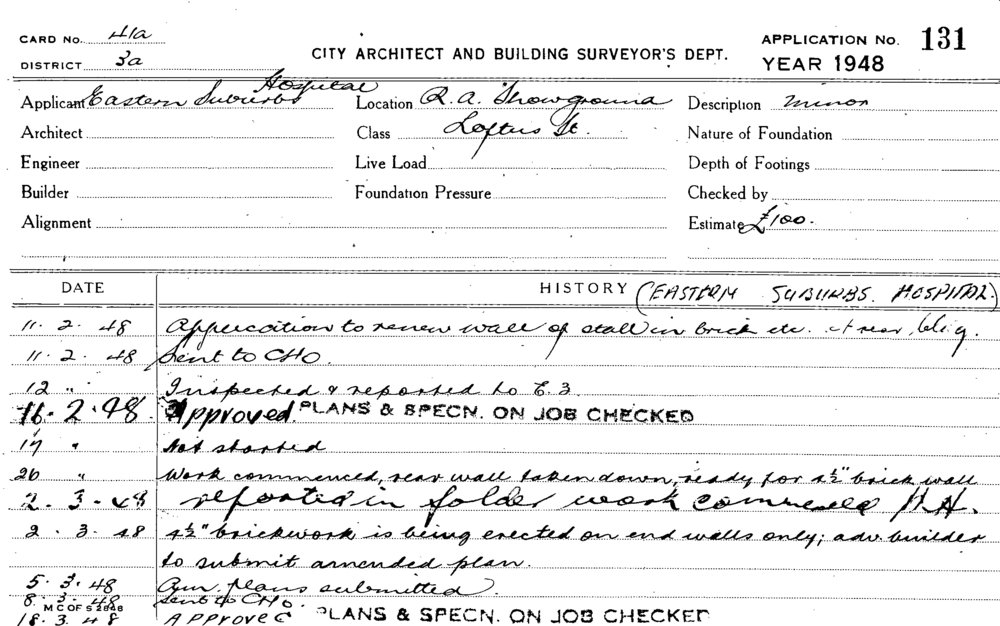 CARD No. 41a
DISTRICT 3a
CITY ARCHITECT AND BUILDING SURVEYOR'S DEPT.
APPLICATION No. 131
YEAR 1948
Applicant Eastern Suburbs Hospital
Location R.A. Showground
Description minor
Architect
Class Loftus St.
Nature of Foundation
Engineer
Live Load
Depth of Footings
Builder
Foundation Pressure
Checked by
Alignment
Estimate £100.
DATE
HISTORY (EASTERN SUBURBS HOSPITAL)
11. 2. 48 Application to renew wall of stall in brick etc. at rear, blig.
11. 2. 48 Sent to CHO.
12 " Inspected & reported to E.3
16. 2. 48 Approved. PLANS & SPECN. ON JOB CHECKED
17 " Not started
26 " Work commenced, rear wall taken down, ready for 4½" brick wall
2. 3. 48 reported in folder work commenced
2. 3. 48 4½" brickwork is being erected on end walls only; adv. builder
to submit amended plan.
5. 3. 48 Am. plans submitted
8. 3. 48 Sent to CHO.
M C OF S 2848
18. 3. 48 APProved PLANS & SPECN. ON JOB CHECKED